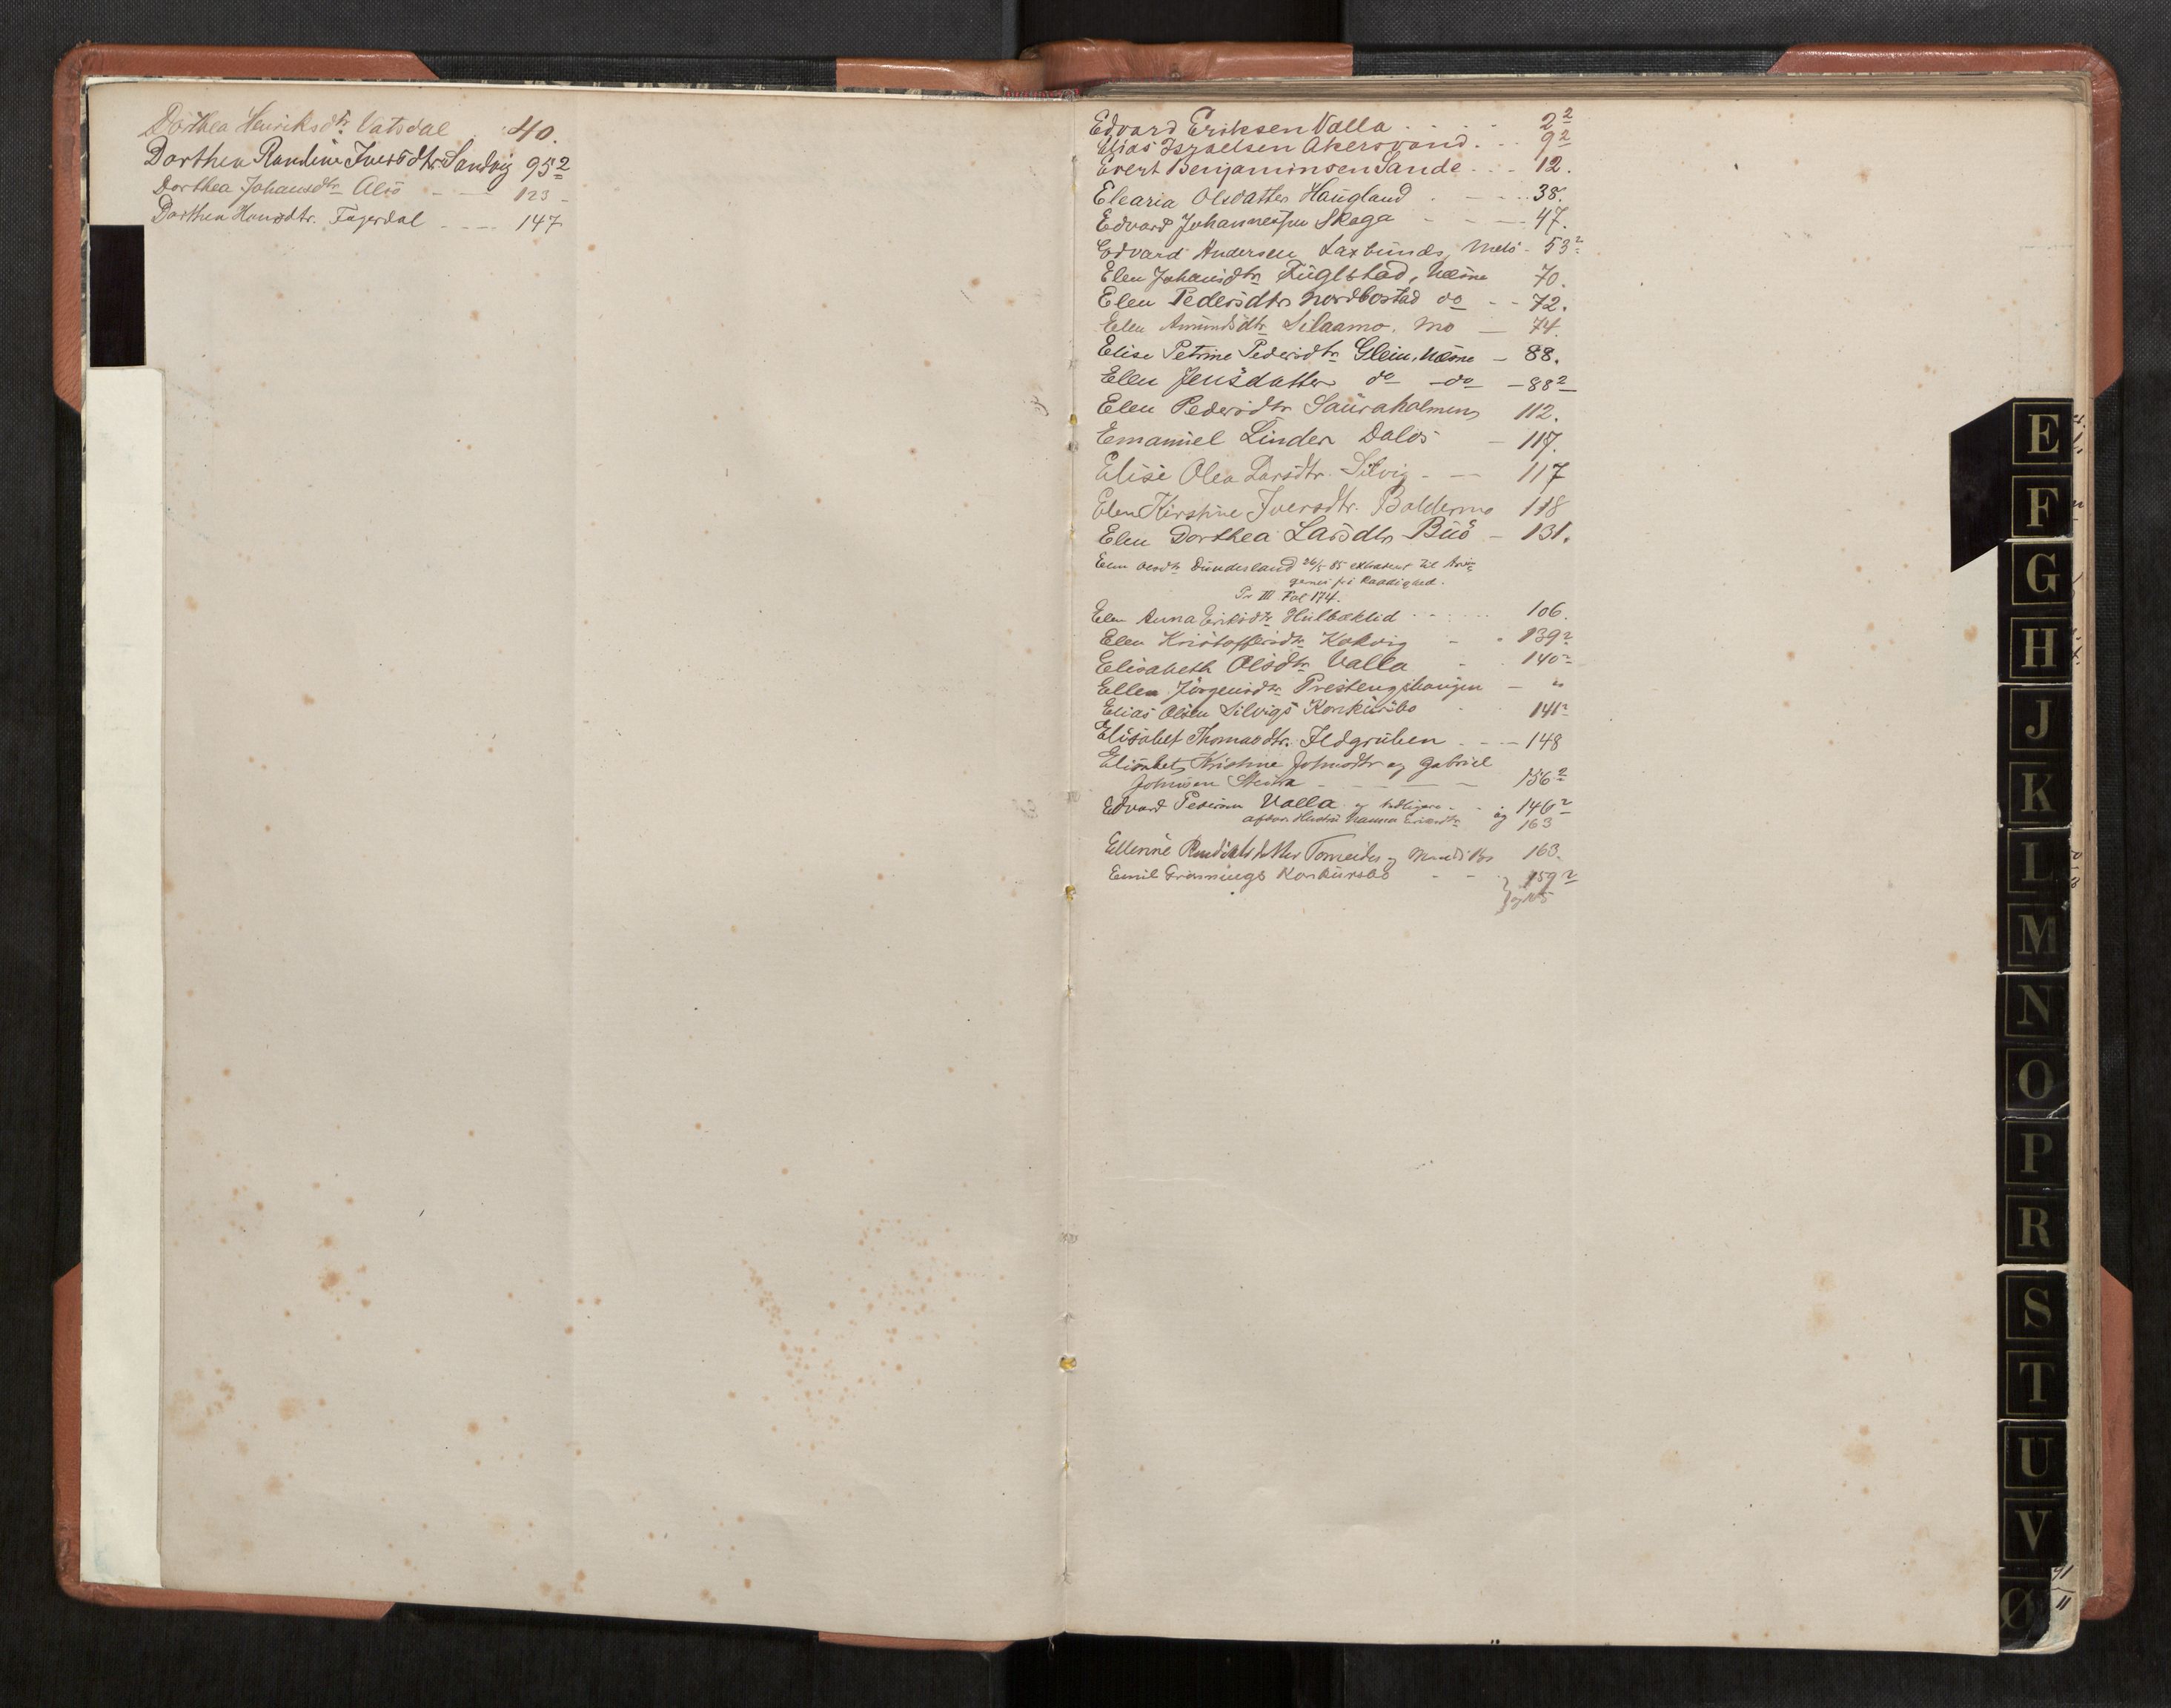 Dorthea Henriksdtr Vatsdal 40.
Dorthea Randine Iversdtr Sandvig 95 2
Dorthea Johansdtr Alsö - - 123 -
Dorthea Hansdtr. Fagerdal - - - - 147
Edvard Eriksen Valla . . . . 2 2
Elias Israelsen Akersvand . . . 9 2
Evert Benjaminsen Sande . . . 12.
Elearia Olsdatter Haugland . - - . . 38.
Edvard Johannessen Skaga - - - - 47.
Edvard Andersen Laxbunds, Melö - 53 2
Elen Johansdtr Fuglstad, Næsne 70.
Elen Pedersdtr Nordbostad do - - 72.
Elen Amundsdtr Silaamo. Mo - 74.
Elise Petrine Pedersdtr Glein, Næsne - 88.
Elen Jensdatter do - do - 88 2
Elen Pedersdtr Sauraholmen 112.
Emanuel Linder Dalos - 117.
Elise Olea Larsdtr. Silvig - - 117
Elen Kirstine Iversdtr. Baldermo 118
Elen Dorthea Larsdtr Buö - 131.
Elen Olsdtr Dunderland 26/5 85 extraheret til Arvin-
gernes fri Raadighed.
Pr III Fol 174.
Elen Anna Eriksdtr Hulbæklid . . . . 106.
Elen Kristoffersdtr Kokvig - . 139 2
Elisabeth Olsdtr Valla - . 140 2
Ellen Jörgensdtr Prestenghaugen - "
Elias Olsen Silvigs Konkursbo . . 141 2
Elisabet Thomasdtr. Ildgruben . - - - 148
Elisabet Kristine Johnsdtr og Gabriel
Johnsen - - - - 156 2
Edvard Pedersen Valla og tidligere - . . 146 2
afdøde Hustru Hanna Eriksdtr og 163
Ellerine 163.
Emil Grönnings Konkursbo - - . 159 2
E
F
G
H
J
K
L
M
N
O
P
R
S
T
U
V
Ø